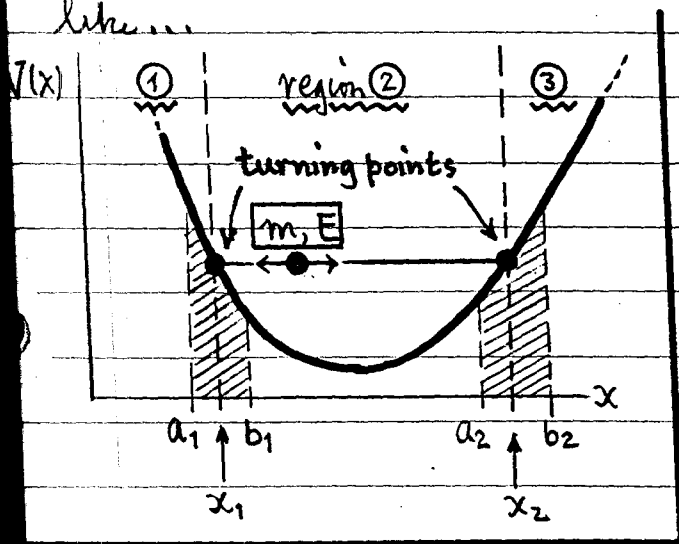 like...
V(x)
① region ② ③
turning points
m, E
x
a₁ b₁ a₂ b₂
x₁ x₂